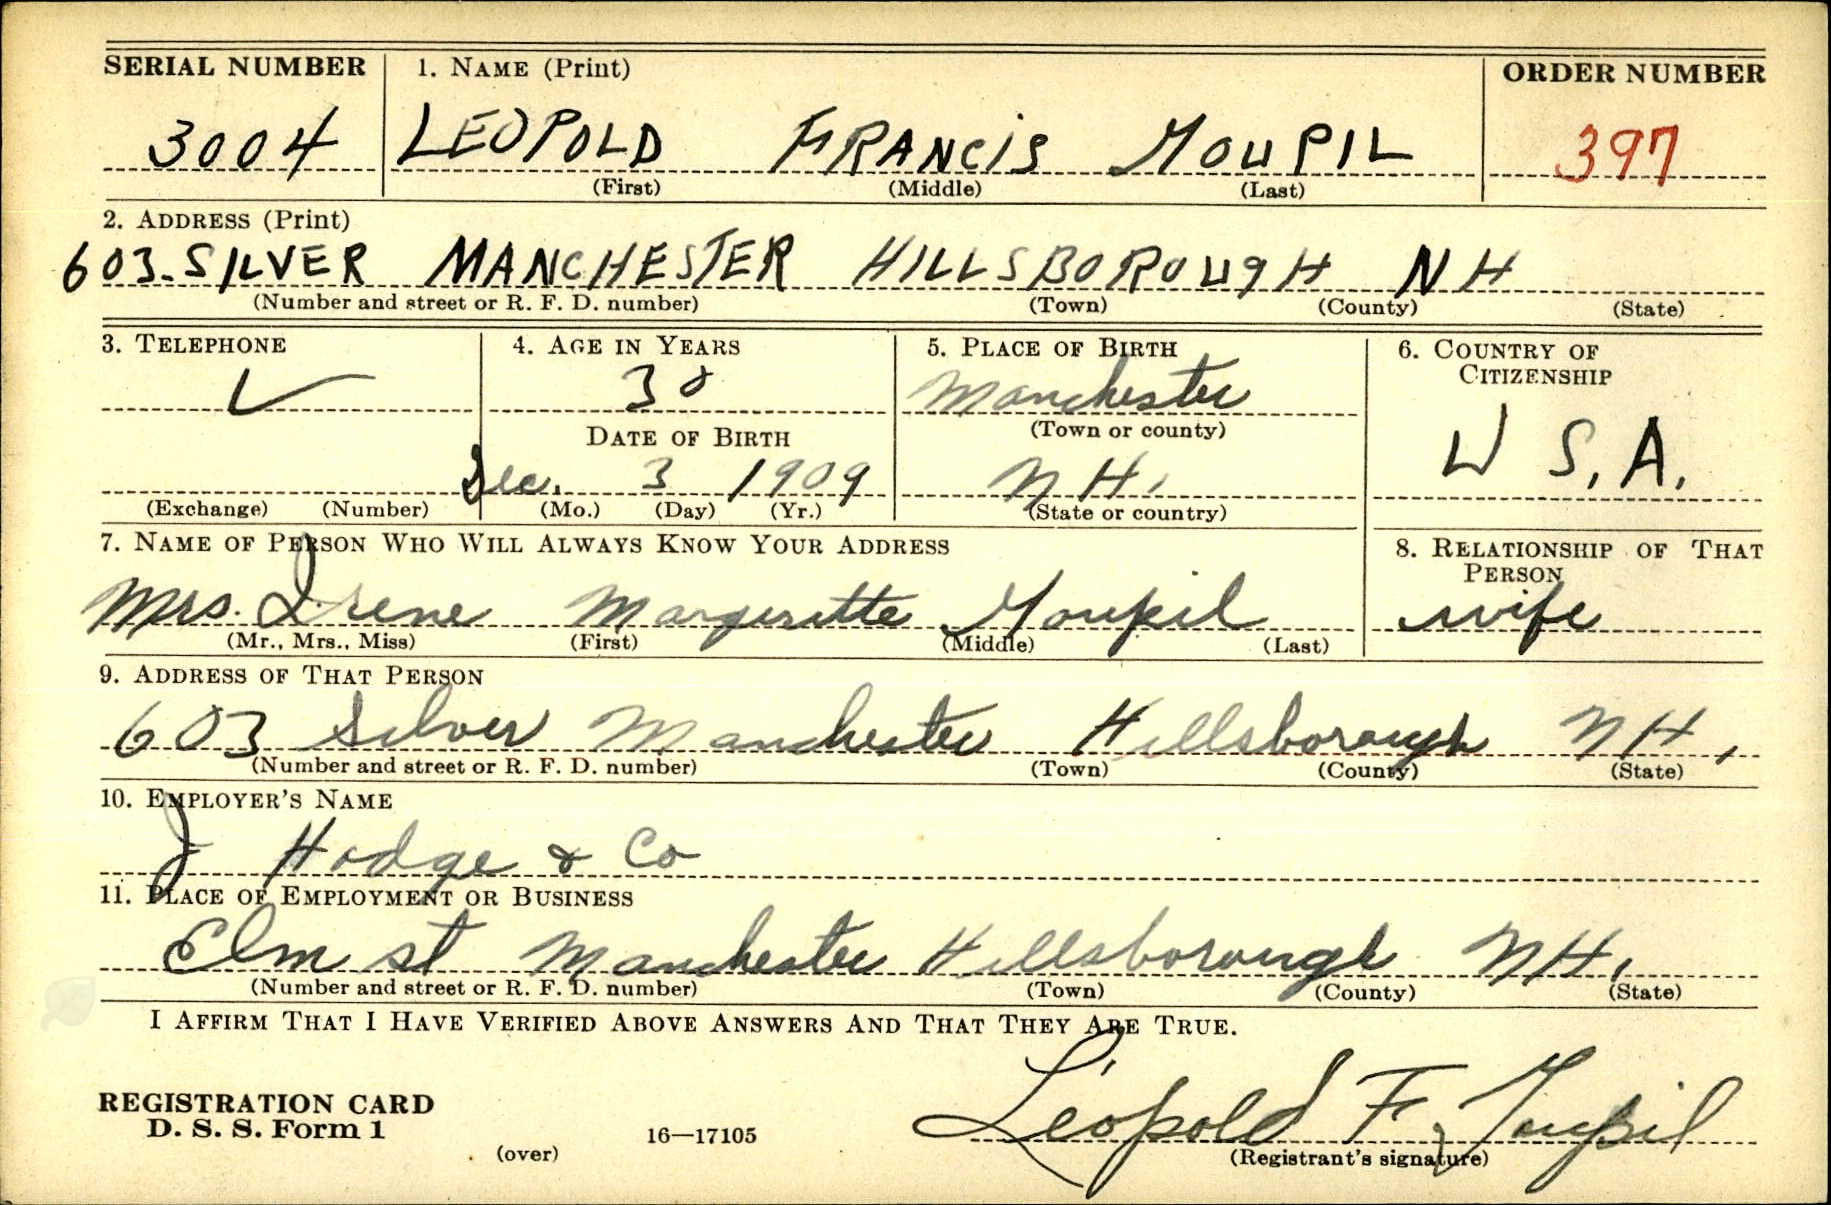 SERIAL NUMBER 1. NAME (Print) ORDER NUMBER
3004 LEOPOLD FRANCIS GOUPIL 397
(First) (Middle) (Last)
2. ADDRESS (Print)
603. SILVER MANCHESTER HILLSBOROUGH NH
(Number and street or R. F. D. number) (Town) (County) (State)
3. TELEPHONE 4. AGE IN YEARS 5. PLACE OF BIRTH 6. COUNTRY OF CITIZENSHIP
30 Manchester
DATE OF BIRTH (Town or county) U S. A.
Dec. 3 1909 N H.
(Exchange) (Number) (Mo.) (Day) (Yr.) (State or country)
7. NAME OF PERSON WHO WILL ALWAYS KNOW YOUR ADDRESS 8. RELATIONSHIP OF THAT PERSON
Mrs. Irene Margeritte Goupil wife
(Mr., Mrs., Miss) (First) (Middle) (Last)
9. ADDRESS OF THAT PERSON
603 Silver Manchester Hillsborough NH.
(Number and street or R. F. D. number) (Town) (County) (State)
10. EMPLOYER'S NAME
J Hodge & Co
11. PLACE OF EMPLOYMENT OR BUSINESS
Elm st Manchester Hillsborough NH.
(Number and street or R. F. D. number) (Town) (County) (State)
I AFFIRM THAT I HAVE VERIFIED ABOVE ANSWERS AND THAT THEY ARE TRUE.
REGISTRATION CARD
D. S. S. Form 1
(over) 16—17105
Léopold F. Goupil
(Registrant's signature)